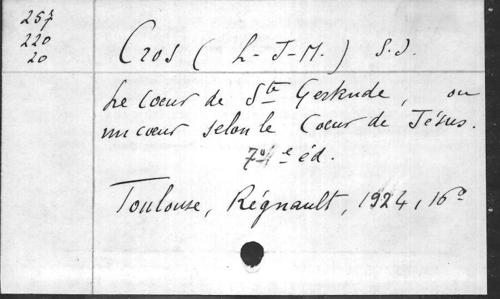 257
220
20
Cros (L-J-M.) S.J.
Le Coeur de Ste Gertrude, ou
un coeur selon le Coeur de Jésus.
e éd.
Toulouse, Régnault, 1924, 16º